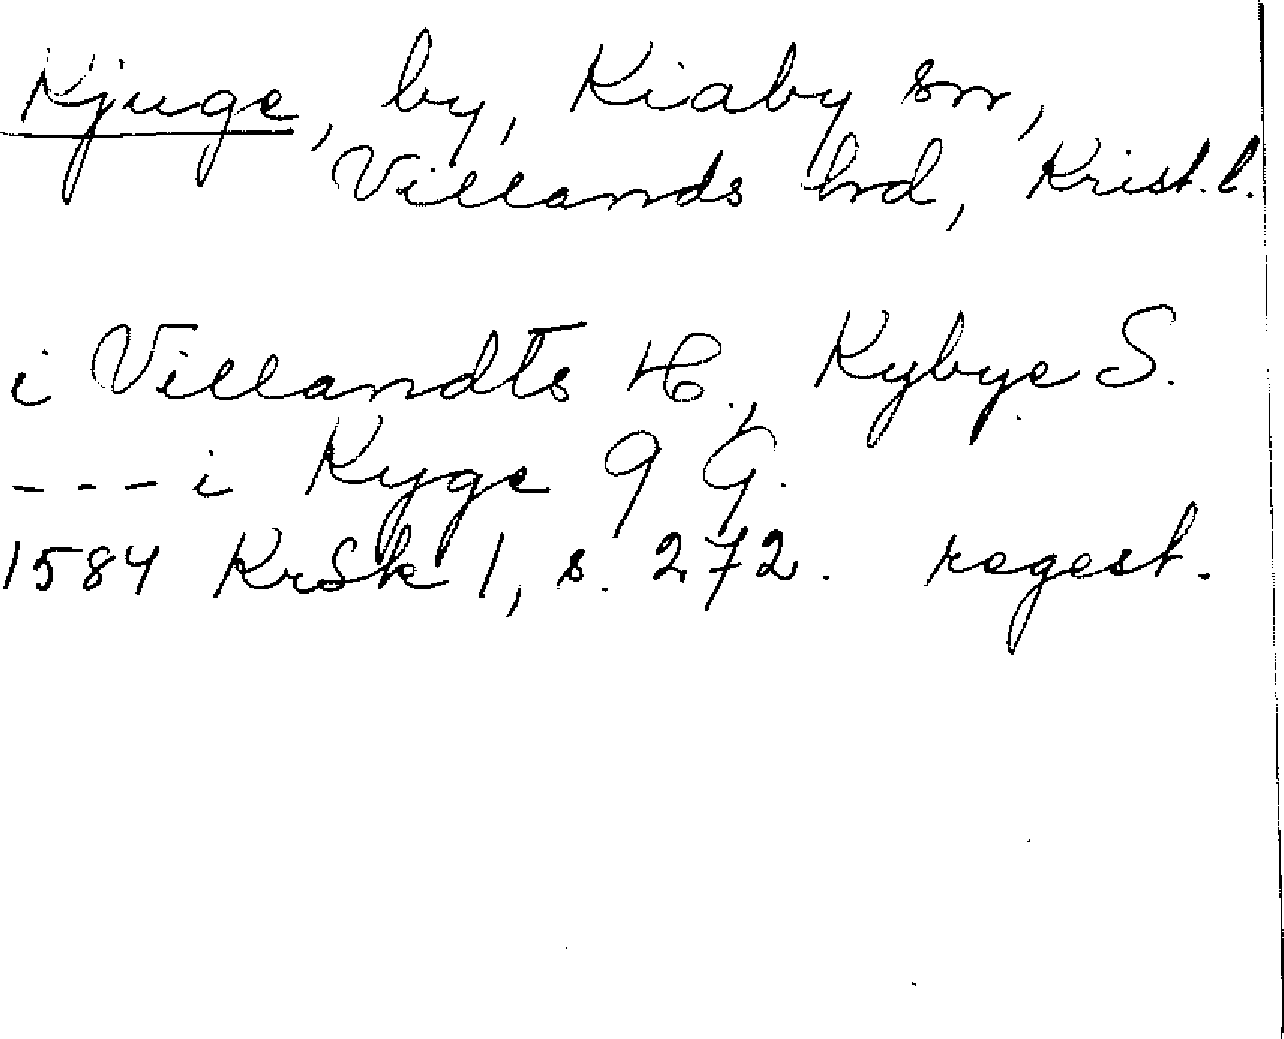 Kjuge, by, Kiaby sn,
Villands hd, Krist. l.
i Villandts H., Kybye S.
- - - i Kyge 9 G.
1584 KrSk 1, s. 272. regest.